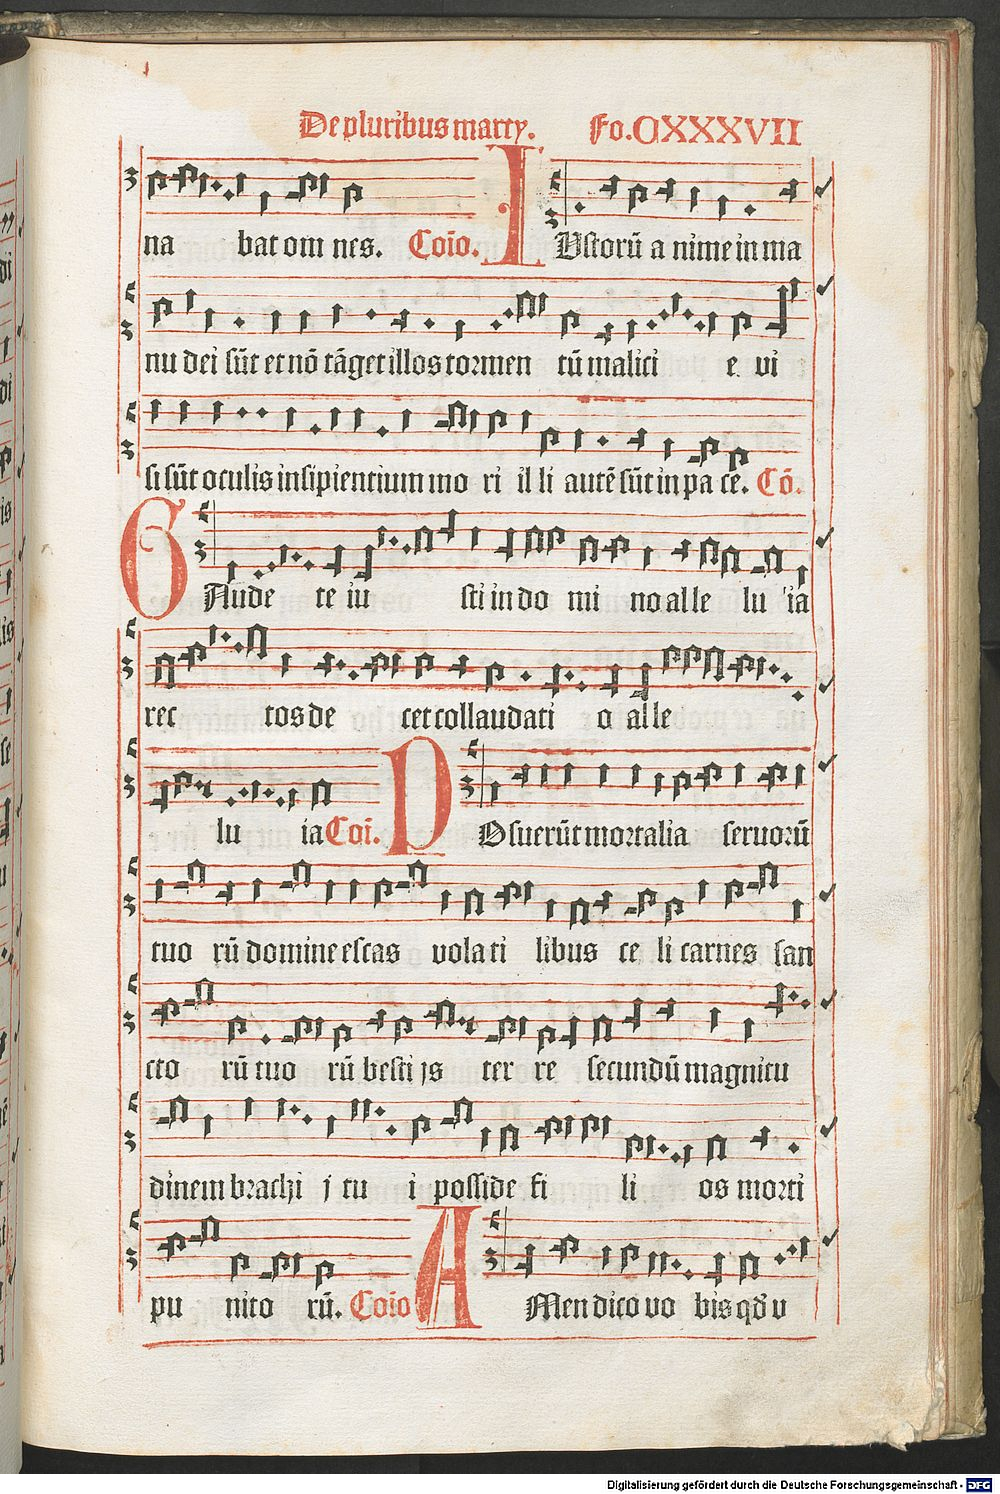 De pluribus marty. Fo. CXXXVII
na bat om nes. Coio. IUstorū a nime in ma
nu dei sūt et nō tāget illos tormen tū malici e vi
si sūt oculis insipientium mo ri il li autē sūt in pa ce. Cō.
GAude te iu sti in do mi no al le lu ia
rec tos de cet collaudati o al le
lu ia Coi. POsuerūt mortalia seruorū
tuo rū domine escas vola ti libus ce li carnes san
cto rū tuo rū besti js ter re secundū magnitu
dinem brachi j tu i posside fi li os morti
pu nito rū. Coio AMen dico vo bis qđ v
Digitalisierung gefördert durch die Deutsche Forschungsgemeinschaft - DFG